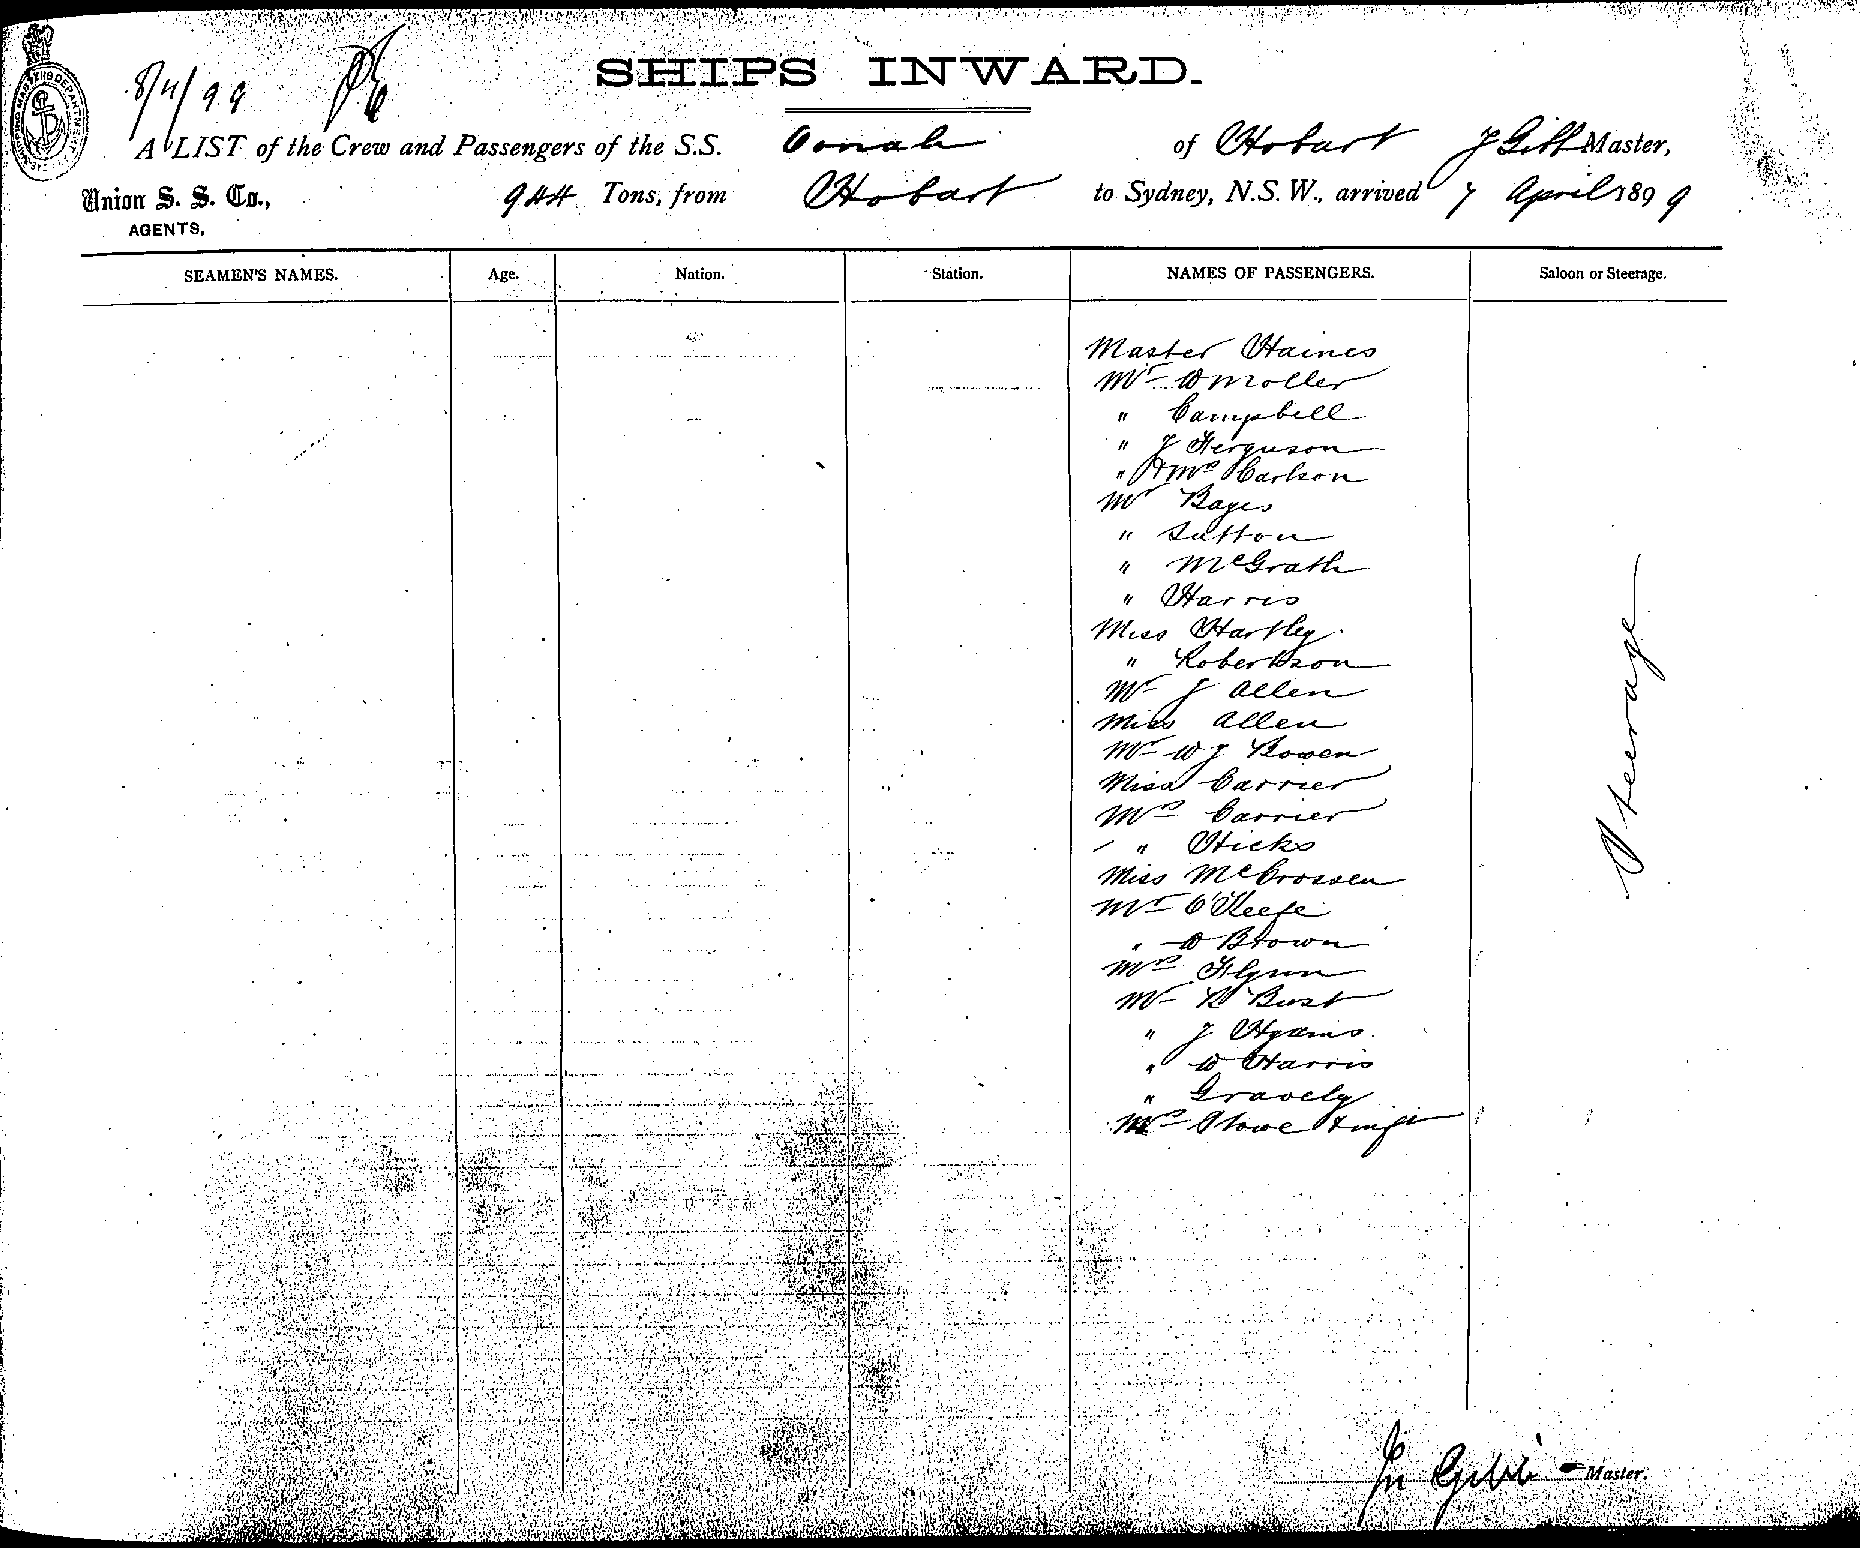 8/4/99
SHIPS INWARD.
A LIST of the Crew and Passengers of the S.S. Oonah of Hobart J Gibb Master,
Union S. S. Co., 944 Tons, from Hobart to Sydney, N.S.W., arrived 7 April 1899
AGENTS,
SEAMEN'S NAMES. Age. Nation. Station. NAMES OF PASSENGERS. Saloon or Steerage.
Master Haines
Mr W Moller
" Campbell
" J Ferguson
" & Mrs Carlson
Mr Bayes
" Sutton
" McGrath
" Harris
Miss Hartley
" Robertson
Mr J Allen
Miss Allen
Mr W J Bowen
Miss Carrier
Mrs Carrier
" Hicks
Miss McCrossen
Mr O'Keefe
" W Brown
Mrs Flynn
Mr R Bust
" J Hyams
" W Harris
" Gravely
Mrs Stowe & inft
Steerage
Jn Gibb Master.